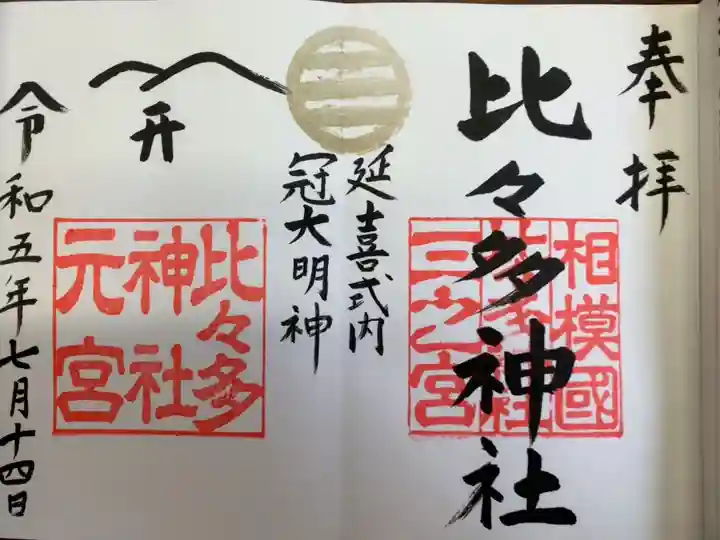 奉拝
比々多神社
相模國
三之宮
延喜式内
冠大明神
开
比々多
神社
元宮
令和五年七月十四日